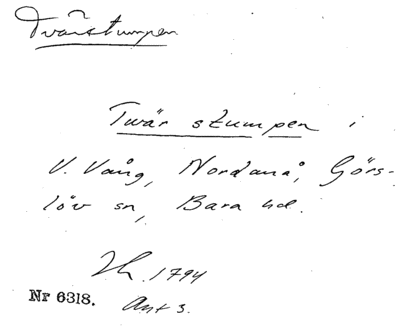 Tvärstumpen
Twär stumpen i
V. Vång, Nordanå, Görs-
löv sn, Bara hd.
Lh. 1794
Nr 6318. Akt 3.